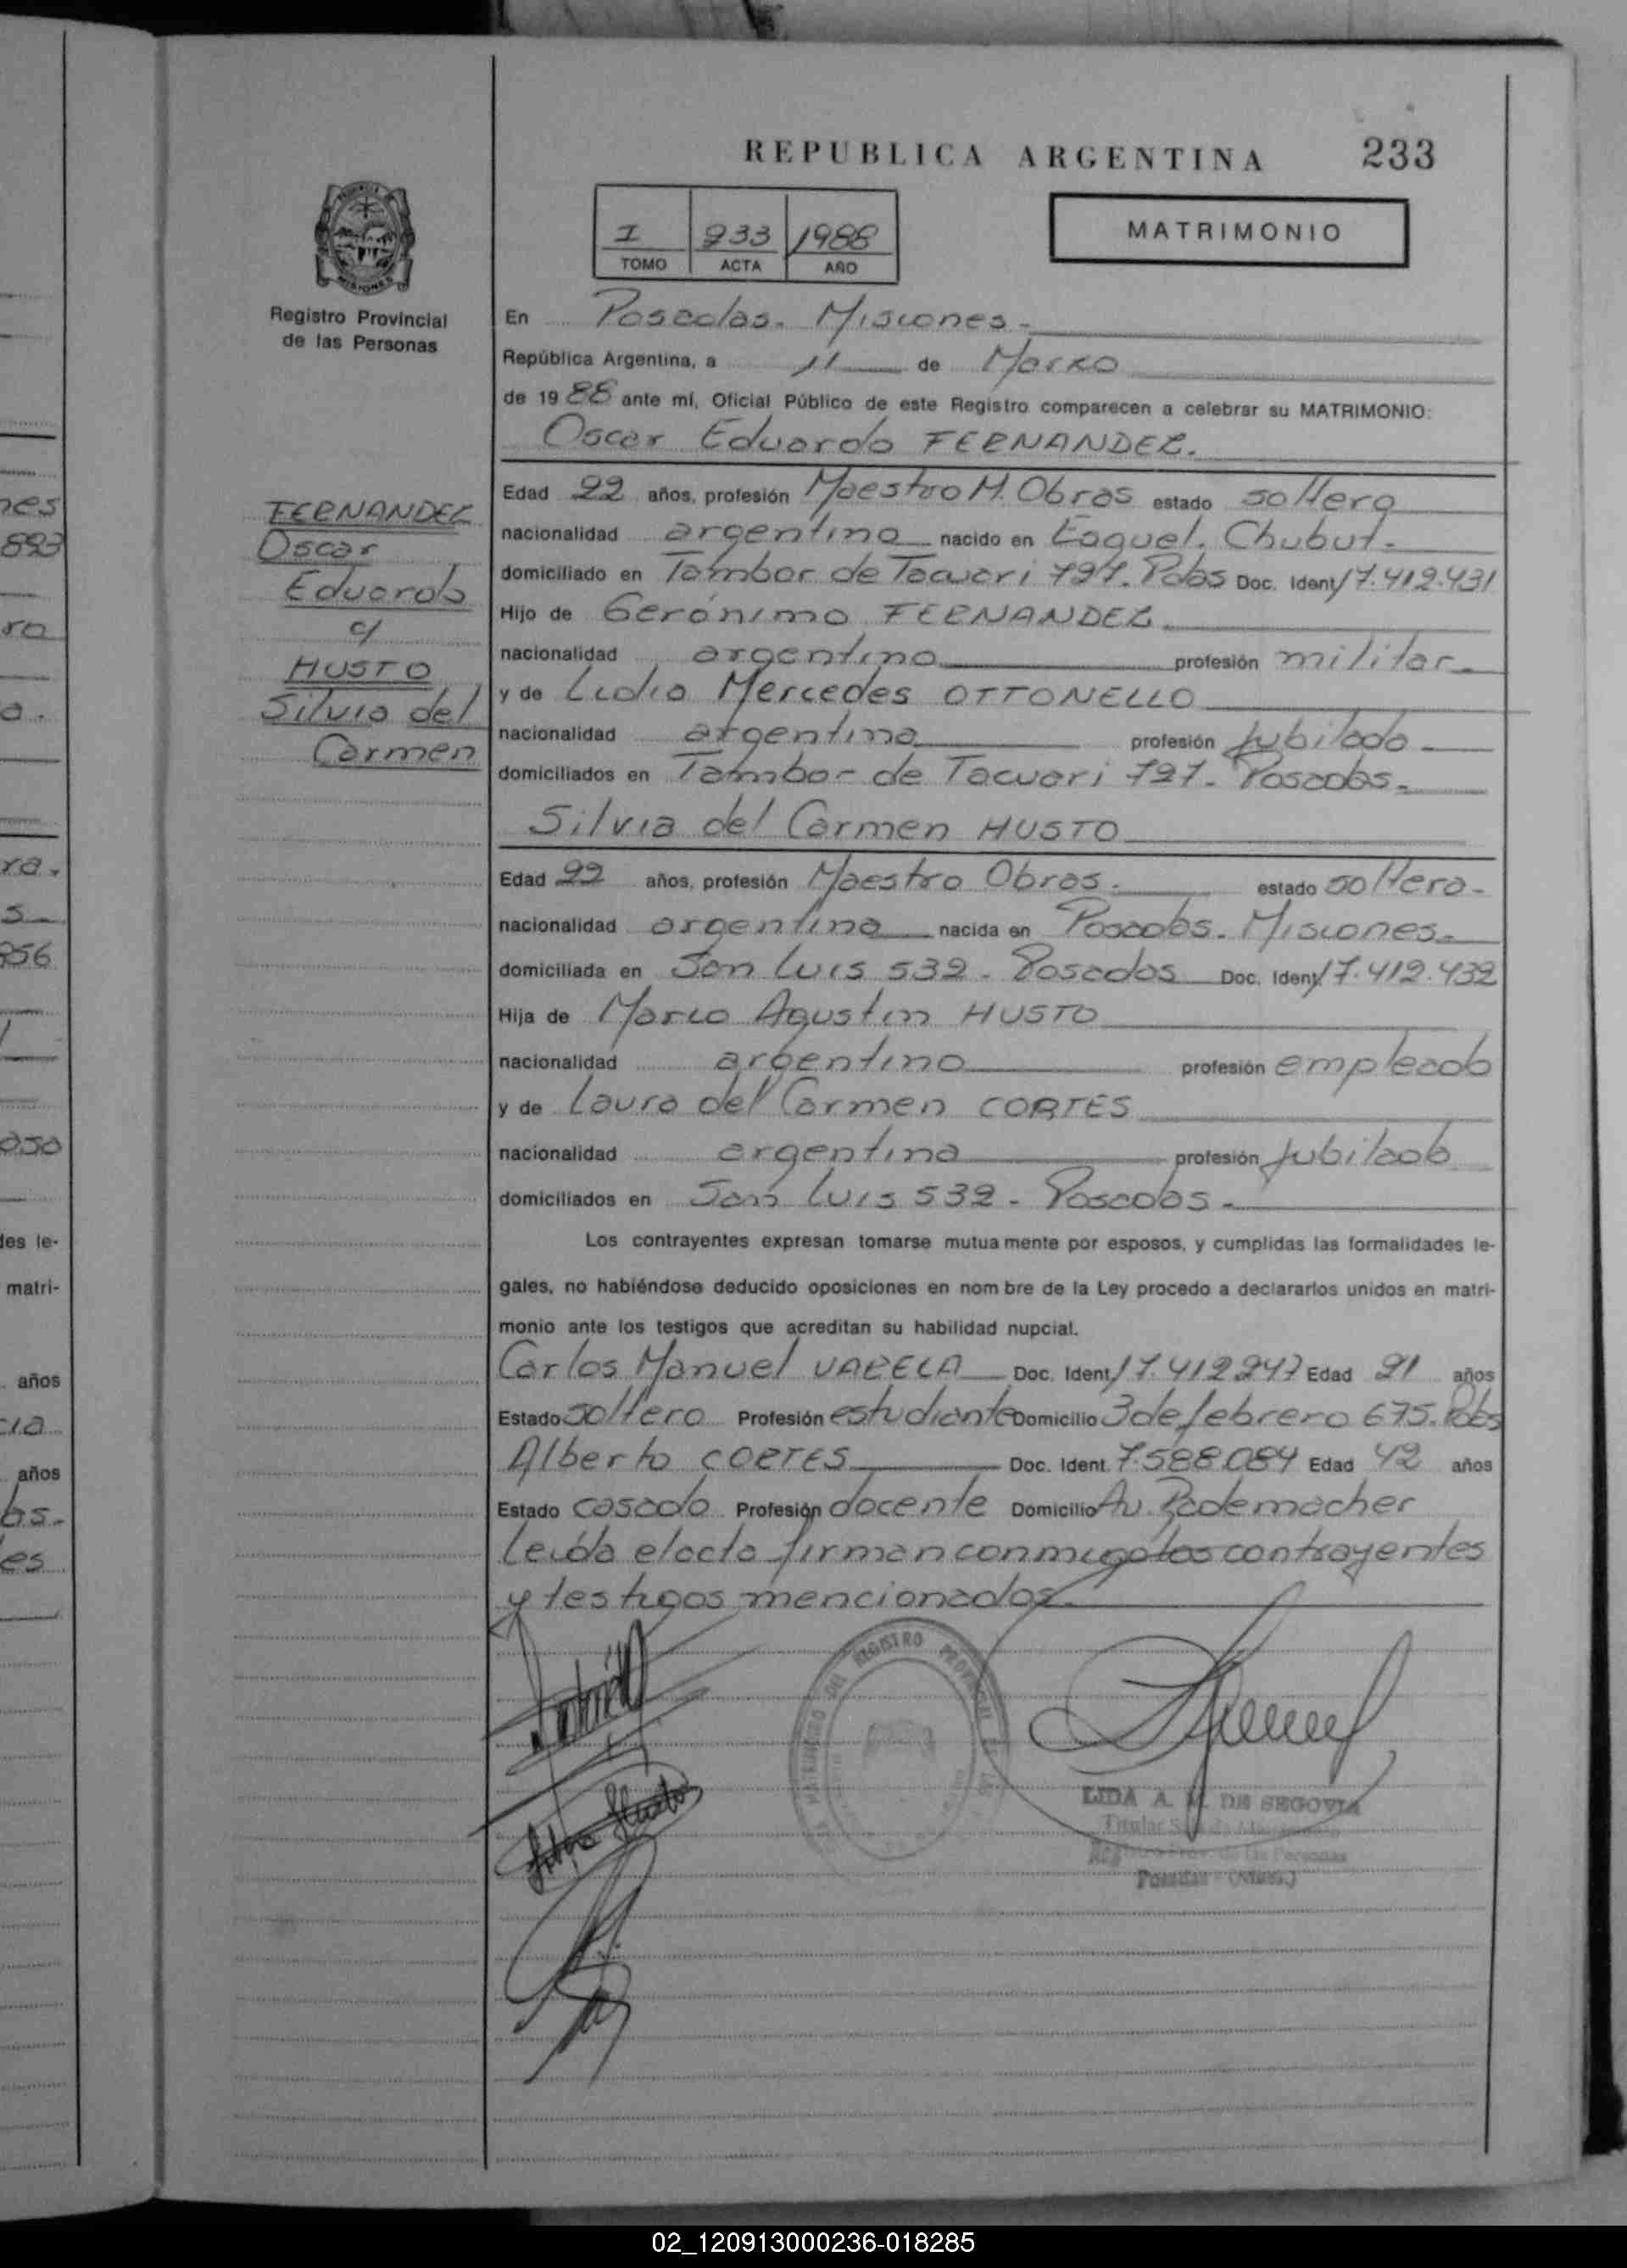 REPUBLICA ARGENTINA 233
I 233 1988
TOMO ACTA AÑO
MATRIMONIO
MISIONES
Registro Provincial
de las Personas
FERNANDEZ
Oscar
Eduardo
c/
HUSTO
Silvia del
Carmen
En Posadas. Misiones.
República Argentina, a 11 de Marzo
de 1988 ante mí, Oficial Público de este Registro comparecen a celebrar su MATRIMONIO:
Oscar Eduardo FERNANDEZ.
Edad 22 años, profesión Maestro M. Obras estado soltero
nacionalidad argentino nacido en Esquel. Chubut.
domiciliado en Tambor de Tacuari 727. Pdas Doc. Ident. 17.412.431
Hijo de Gerónimo FERNANDEZ
nacionalidad argentino profesión militar
y de Lidia Mercedes OTTONELLO
nacionalidad argentina profesión Jubilada
domiciliados en Tambor de Tacuari 727. Posadas.
Silvia del Carmen HUSTO
Edad 22 años, profesión Maestro Obras. estado soltera
nacionalidad argentina nacida en Posadas. Misiones.
domiciliada en San Luis 532 - Posadas Doc. Ident. 17.412.432
Hija de Marco Agustin HUSTO
nacionalidad argentino profesión empleado
y de Laura del Carmen CORTES
nacionalidad argentina profesión Jubilada
domiciliados en San Luis 532 - Posadas -
Los contrayentes expresan tomarse mutuamente por esposos, y cumplidas las formalidades le-
gales, no habiéndose deducido oposiciones en nombre de la Ley procedo a declararlos unidos en matri-
monio ante los testigos que acreditan su habilidad nupcial.
Carlos Manuel VARELA Doc. Ident. 17.412247 Edad 21 años
Estado soltero Profesión estudiante Domicilio 3 de febrero 675. Pdas
Alberto CORTES Doc. Ident. 7.588.084 Edad 42 años
Estado casado Profesión docente Domicilio Av. Rademacher
Leida el acta firman conmigo los contrayentes
y testigos mencionados
Silvia Husto
REGISTRO PROVINCIAL DE LAS
LIDA A. DE SEGOVIA
Titular
Registro Prov. de las Personas
Posadas - (Mnes.)
nes
893
ro
a.
ra.
s
256
050
des le-
matri-
años
cia
años
as.
es
02_120913000236-018285